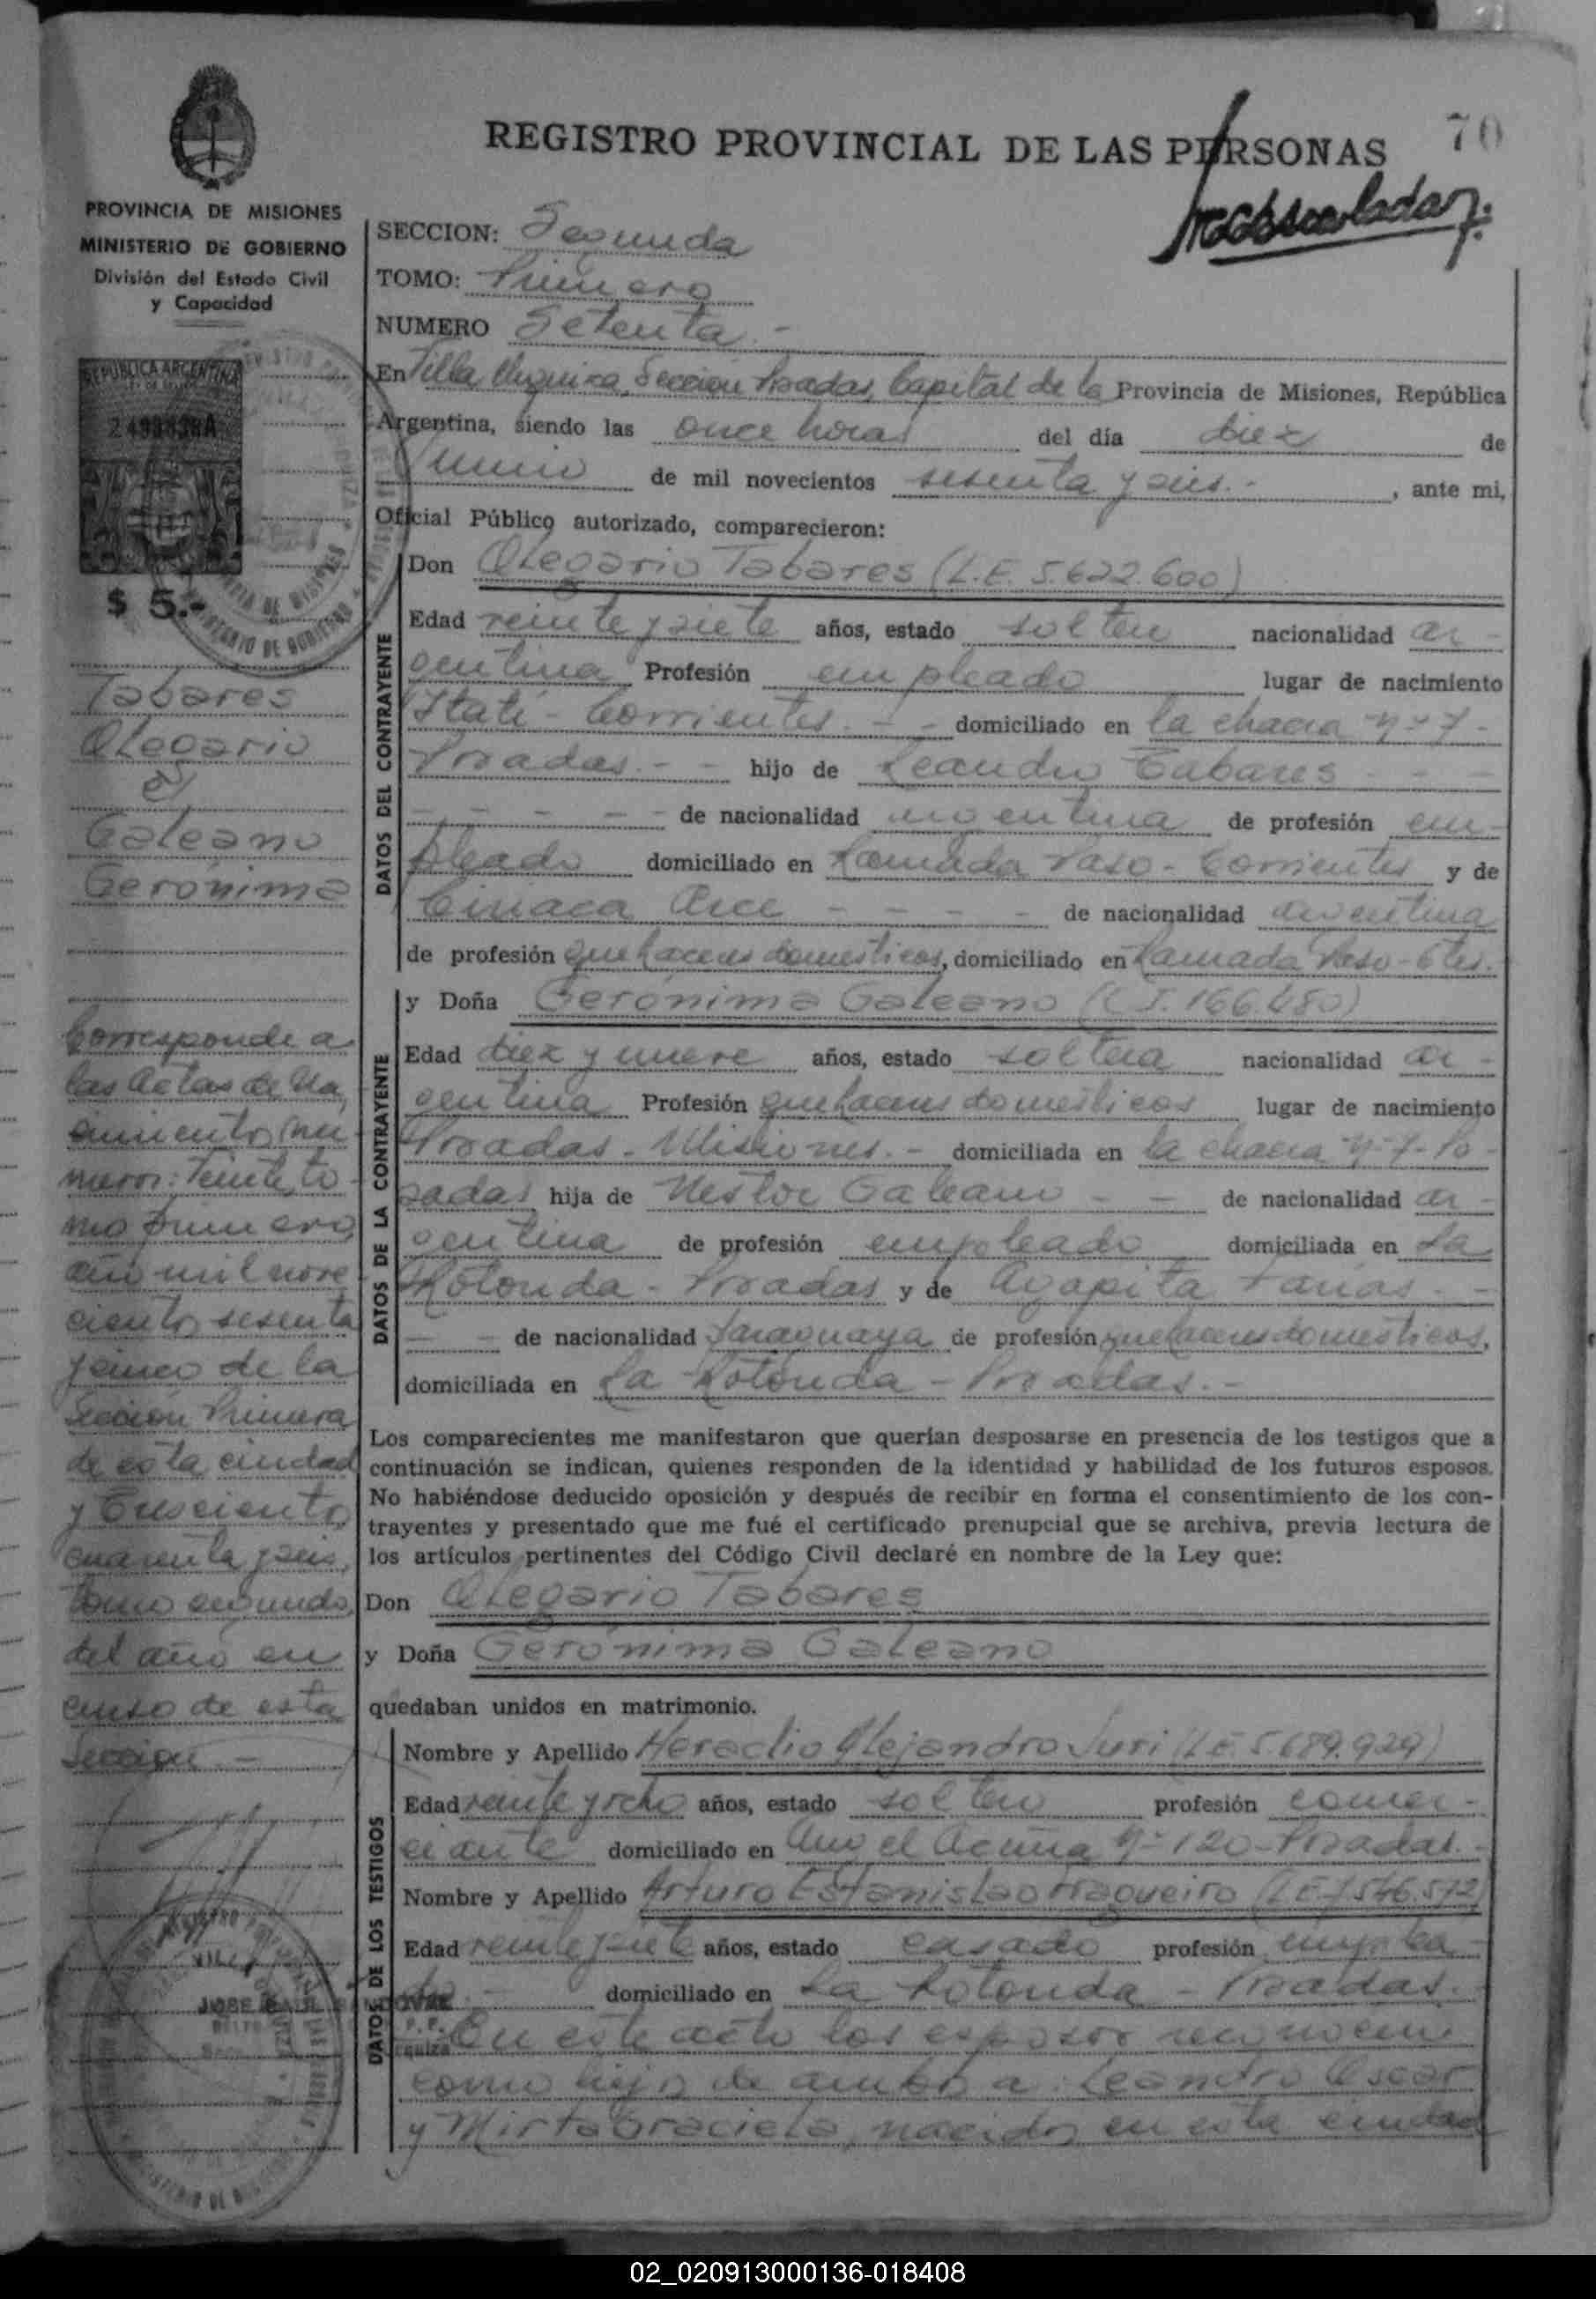 REGISTRO PROVINCIAL DE LAS PERSONAS
70
PROVINCIA DE MISIONES
MINISTERIO DE GOBIERNO
División del Estado Civil
y Capacidad
REPUBLICA ARGENTINA
$ 5.-
Tabares
Olegario
y
Galeano
Gerónima
Corresponde a
las Actas de Na
cimiento nu
meros: Veinte, to
mo primero,
año mil nove
cientos sesenta
y cinco de la
Sección Primera
de esta ciudad
y Trescientos
cuarenta y seis,
tomo segundo,
del año en
curso de esta
Sección.-
SECCION: Segunda
TOMO: Primero
NUMERO Setenta.-
En Villa Urquiza, Sección Posadas, Capital de la Provincia de Misiones, República
Argentina, siendo las once horas del día diez de
Junio de mil novecientos sesenta y seis.- , ante mi,
Oficial Público autorizado, comparecieron:
DATOS DEL CONTRAYENTE
Don Olegario Tabares (L.E. 5.622.600)
Edad veinte y siete años, estado soltero nacionalidad ar-
gentina Profesión empleado lugar de nacimiento
Itatí - Corrientes.- - domiciliado en la chacra Nº 7-
Posadas.- - hijo de Leandro Tabares - - -
- - - - - de nacionalidad argentina de profesión em-
pleado domiciliado en Ramada Paso - Corrientes y de
Ciriaca Arce - - - - de nacionalidad argentina
de profesión quehaceres domesticos, domiciliado en Ramada Paso - Ctes.
DATOS DE LA CONTRAYENTE
y Doña Gerónima Galeano (C.I. 166.480)
Edad diez y nueve años, estado soltera nacionalidad ar-
gentina Profesión quehaceres domesticos lugar de nacimiento
Posadas - Misiones.- domiciliada en la chacra Nº 7 - Po-
sadas hija de Nestor Galeano - - de nacionalidad ar-
gentina de profesión empleado domiciliada en La
Rotonda - Posadas y de Agapita Farias - -
- - de nacionalidad Paraguaya de profesión quehaceres domesticos,
domiciliada en La Rotonda - Posadas.-
Los comparecientes me manifestaron que querían desposarse en presencia de los testigos que a
continuación se indican, quienes responden de la identidad y habilidad de los futuros esposos.
No habiéndose deducido oposición y después de recibir en forma el consentimiento de los con-
trayentes y presentado que me fué el certificado prenupcial que se archiva, previa lectura de
los artículos pertinentes del Código Civil declaré en nombre de la Ley que:
Don Olegario Tabares
y Doña Gerónima Galeano
quedaban unidos en matrimonio.
DATOS DE LOS TESTIGOS
Nombre y Apellido Heraclio Alejandro Juri (L.E. 5.689.929)
Edad veinte y ocho años, estado soltero profesión comer-
ciante domiciliado en Angel Acuña Nº 120 - Posadas.-
Nombre y Apellido Arturo Estanislao (L.E. 7.546.572)
Edad veinte y siete años, estado casado profesión emplea-
do.- domiciliado en La Rotonda - Posadas.
En este acto los esposos reconocen
como hijos de ambos a: Leandro Oscar
y Mirta Graciela, nacidos en esta ciudad
02_020913000136-018408